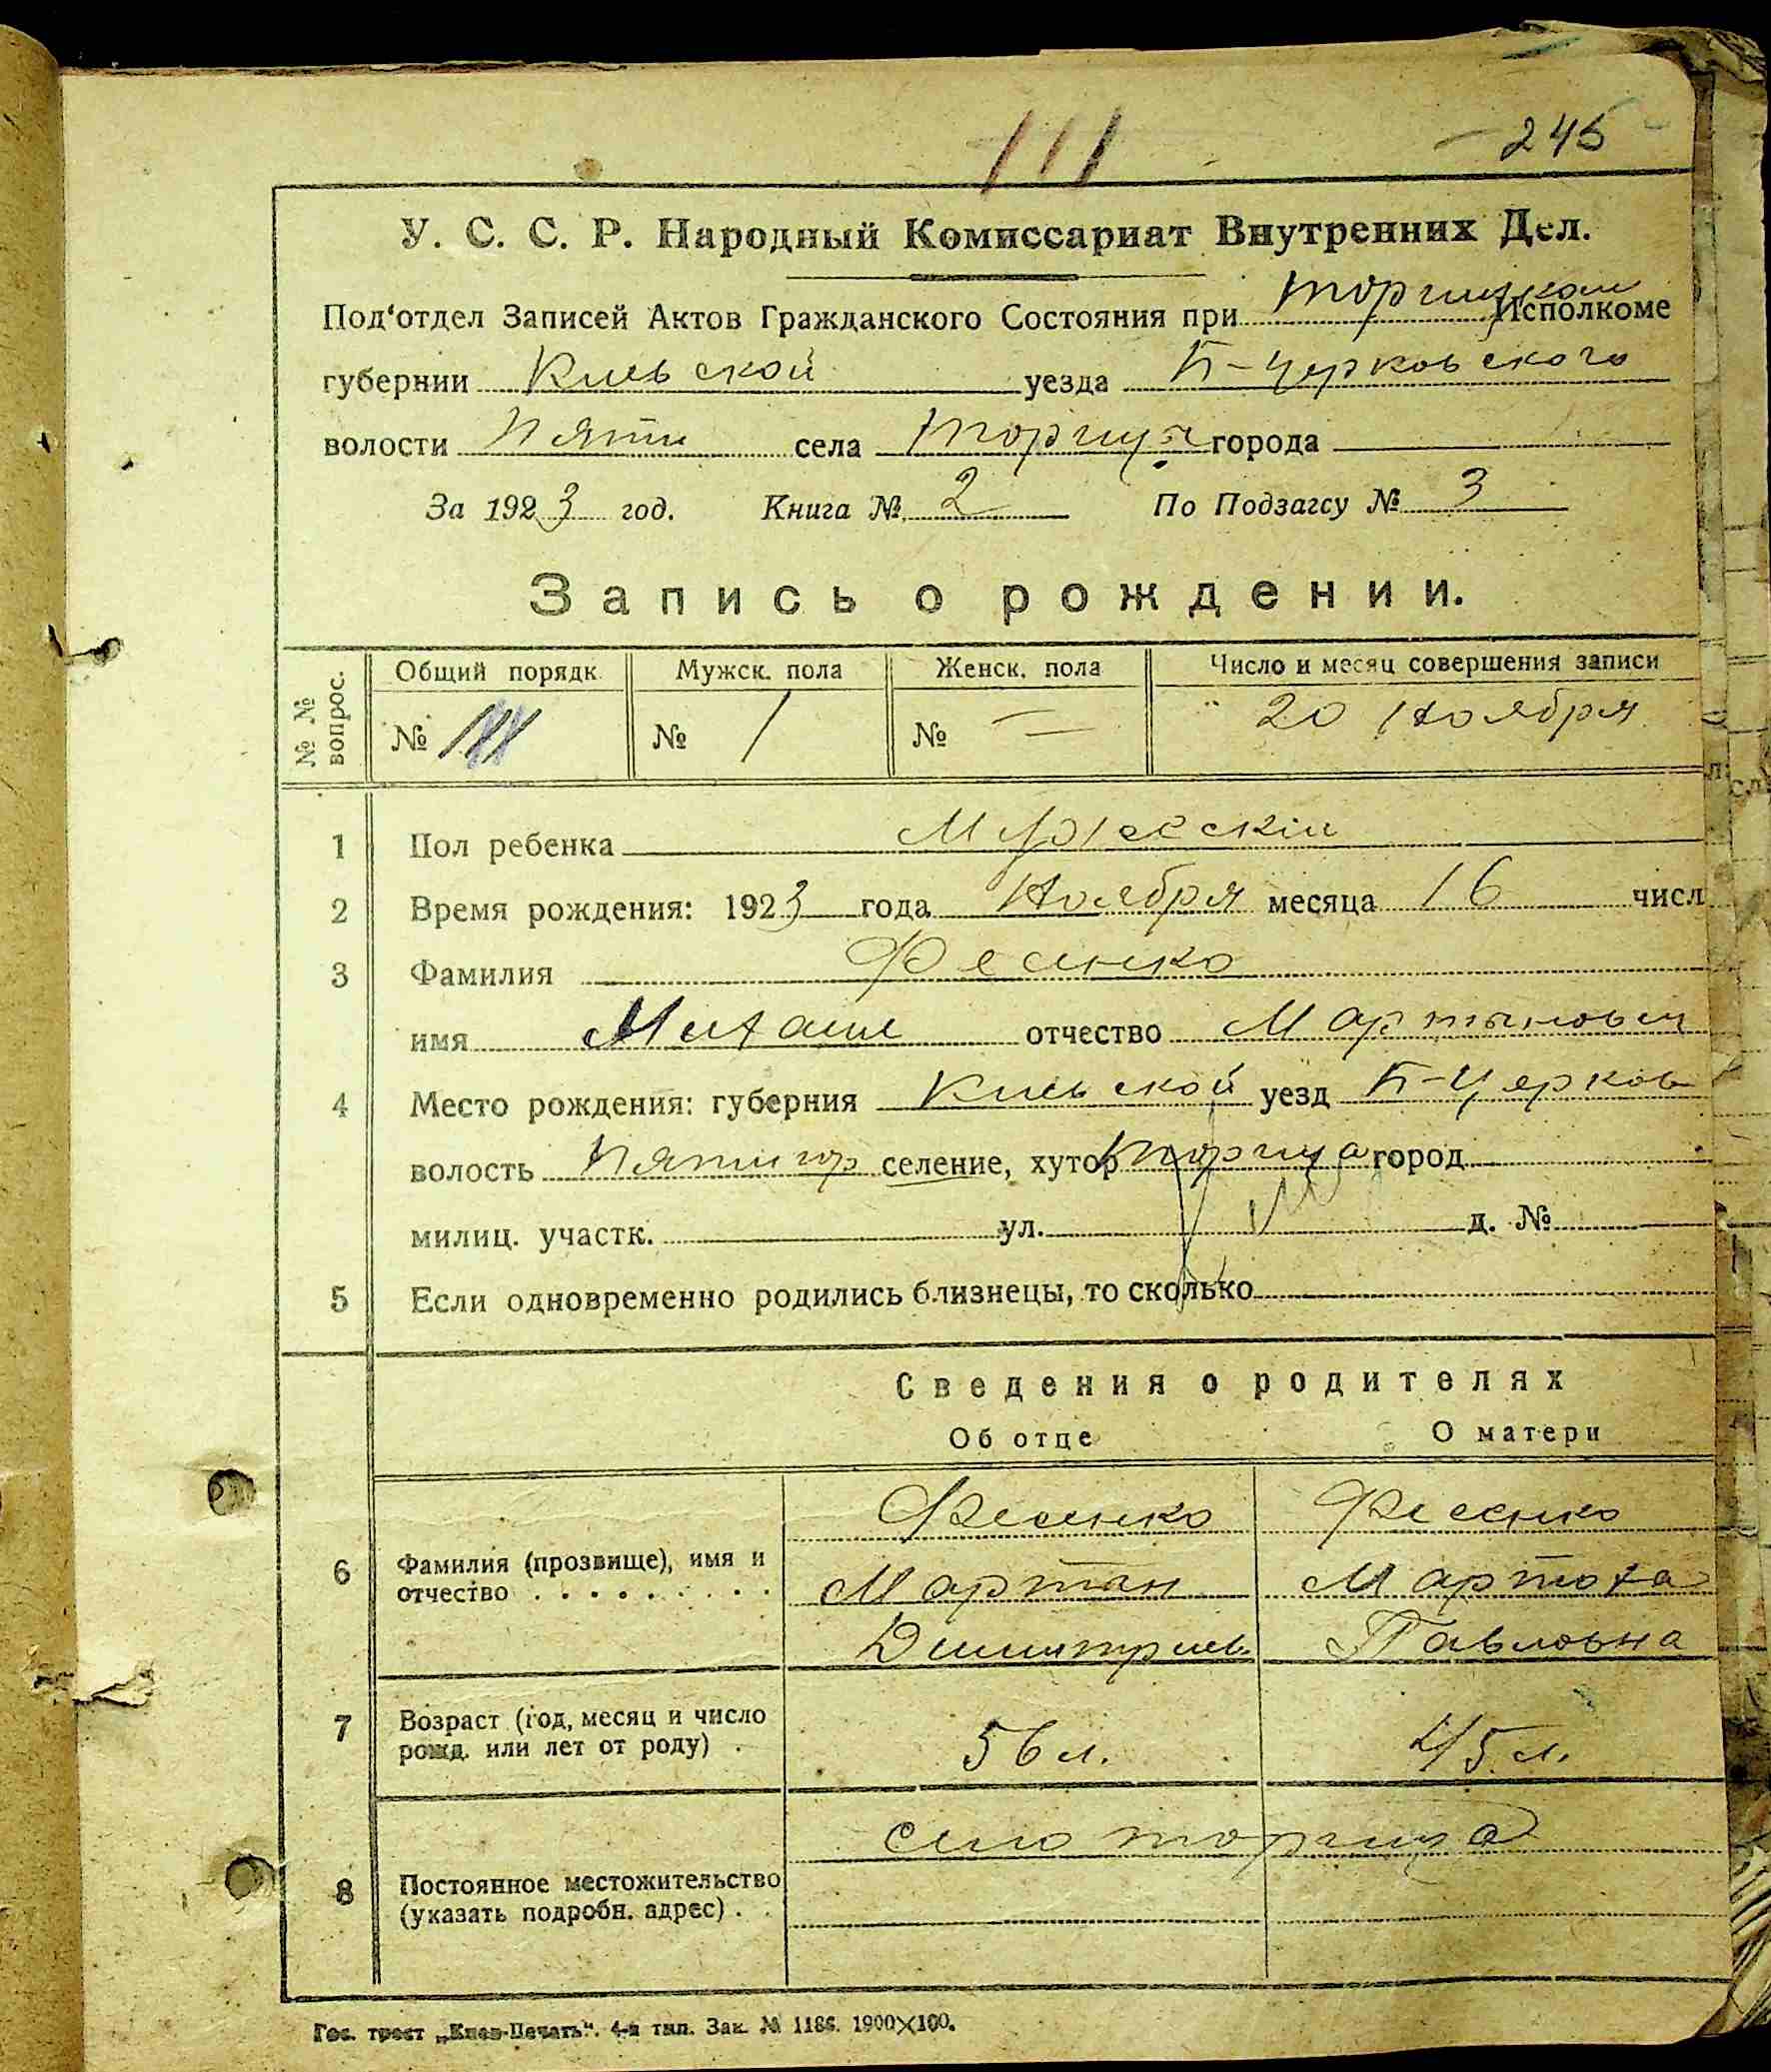 111 245
У. С. С. Р. Народный Комиссариат Внутренних Дел.
Под'отдел Записей Актов Гражданского Состояния при Исполкоме
губернии Киевской уезда Б-Церковского
волости Пяти села Торчица города
За 1923 год. Книга № 2 По Подзагсу № 3
Запись о рождении.
№ № вопрос. Общий порядк. Мужск. пола Женск. пола Число и месяц совершения записи
№ 111 № 1 № — 20 Ноября
1 Пол ребенка Мужесскій
2 Время рождения: 1923 года Ноября месяца 16 числ
3 Фамилия Фесенко
имя Михаил отчество Мартынович
4 Место рождения: губерния Киевской уезд Б-Церков
волость Пятигор селение, хутор Торчица город
милиц. участк. ул. д. №
5 Если одновременно родились близнецы, то сколько
Сведения о родителях
Об отце О матери
Фесенко Фесенко
6 Фамилия (прозвище), имя и
отчество . . . . . . . . . Мартын
Димитриев. Павловна
7 Возраст (год, месяц и число
рожд. или лет от роду) . 56 л. 45 л.
село торчица
8 Постоянное местожительство
(указать подробн. адрес) . .
Гос. трест „Киев-Печать". 4-я тип. Зак. № 1186. 1900×100.